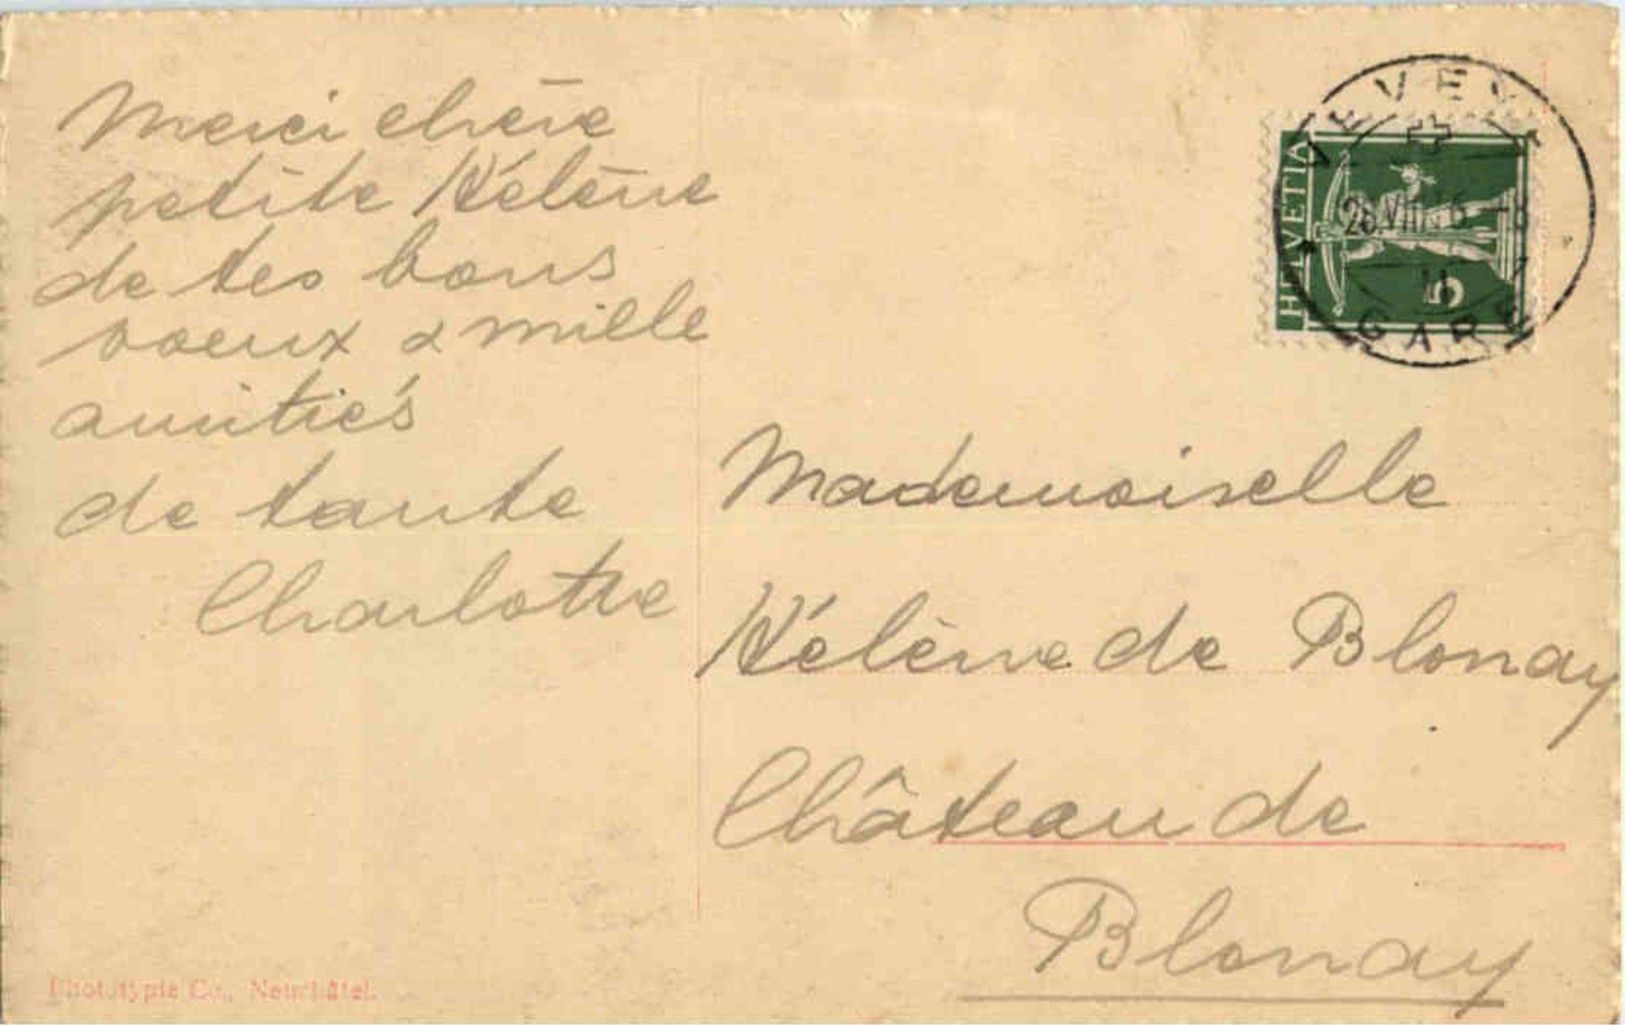 Merci chère
petite Hélène
de tes bons
voeux & mille
amitiés
de tante
Charlotte
VEVEY 1
HELVETIA
26.VIII
11
5
GARE
Mademoiselle
Hélène de Blonay
Château de
Blonay
Phototypie Co., Neuchâtel.